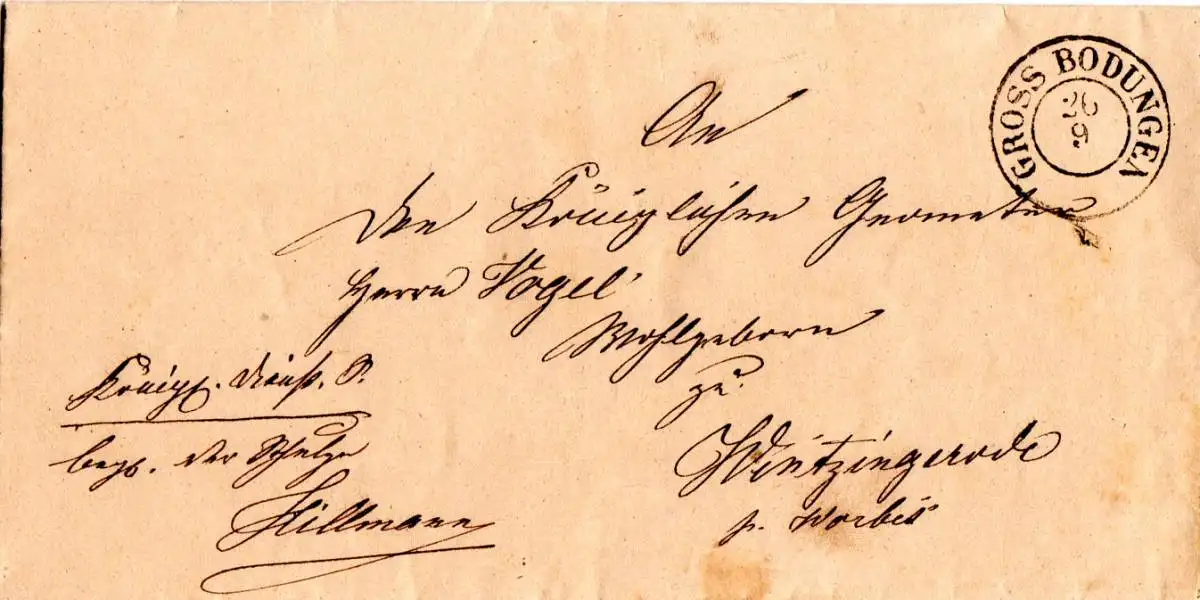 GROSS BODUNGEN
26
9
An
den Königlichen Geometer
Herrn Vogel
Wohlgeborn
zu
Wintzingerode
p. Worbis
Königl. Dienst. S.
begl. der Schulze
Hillmann